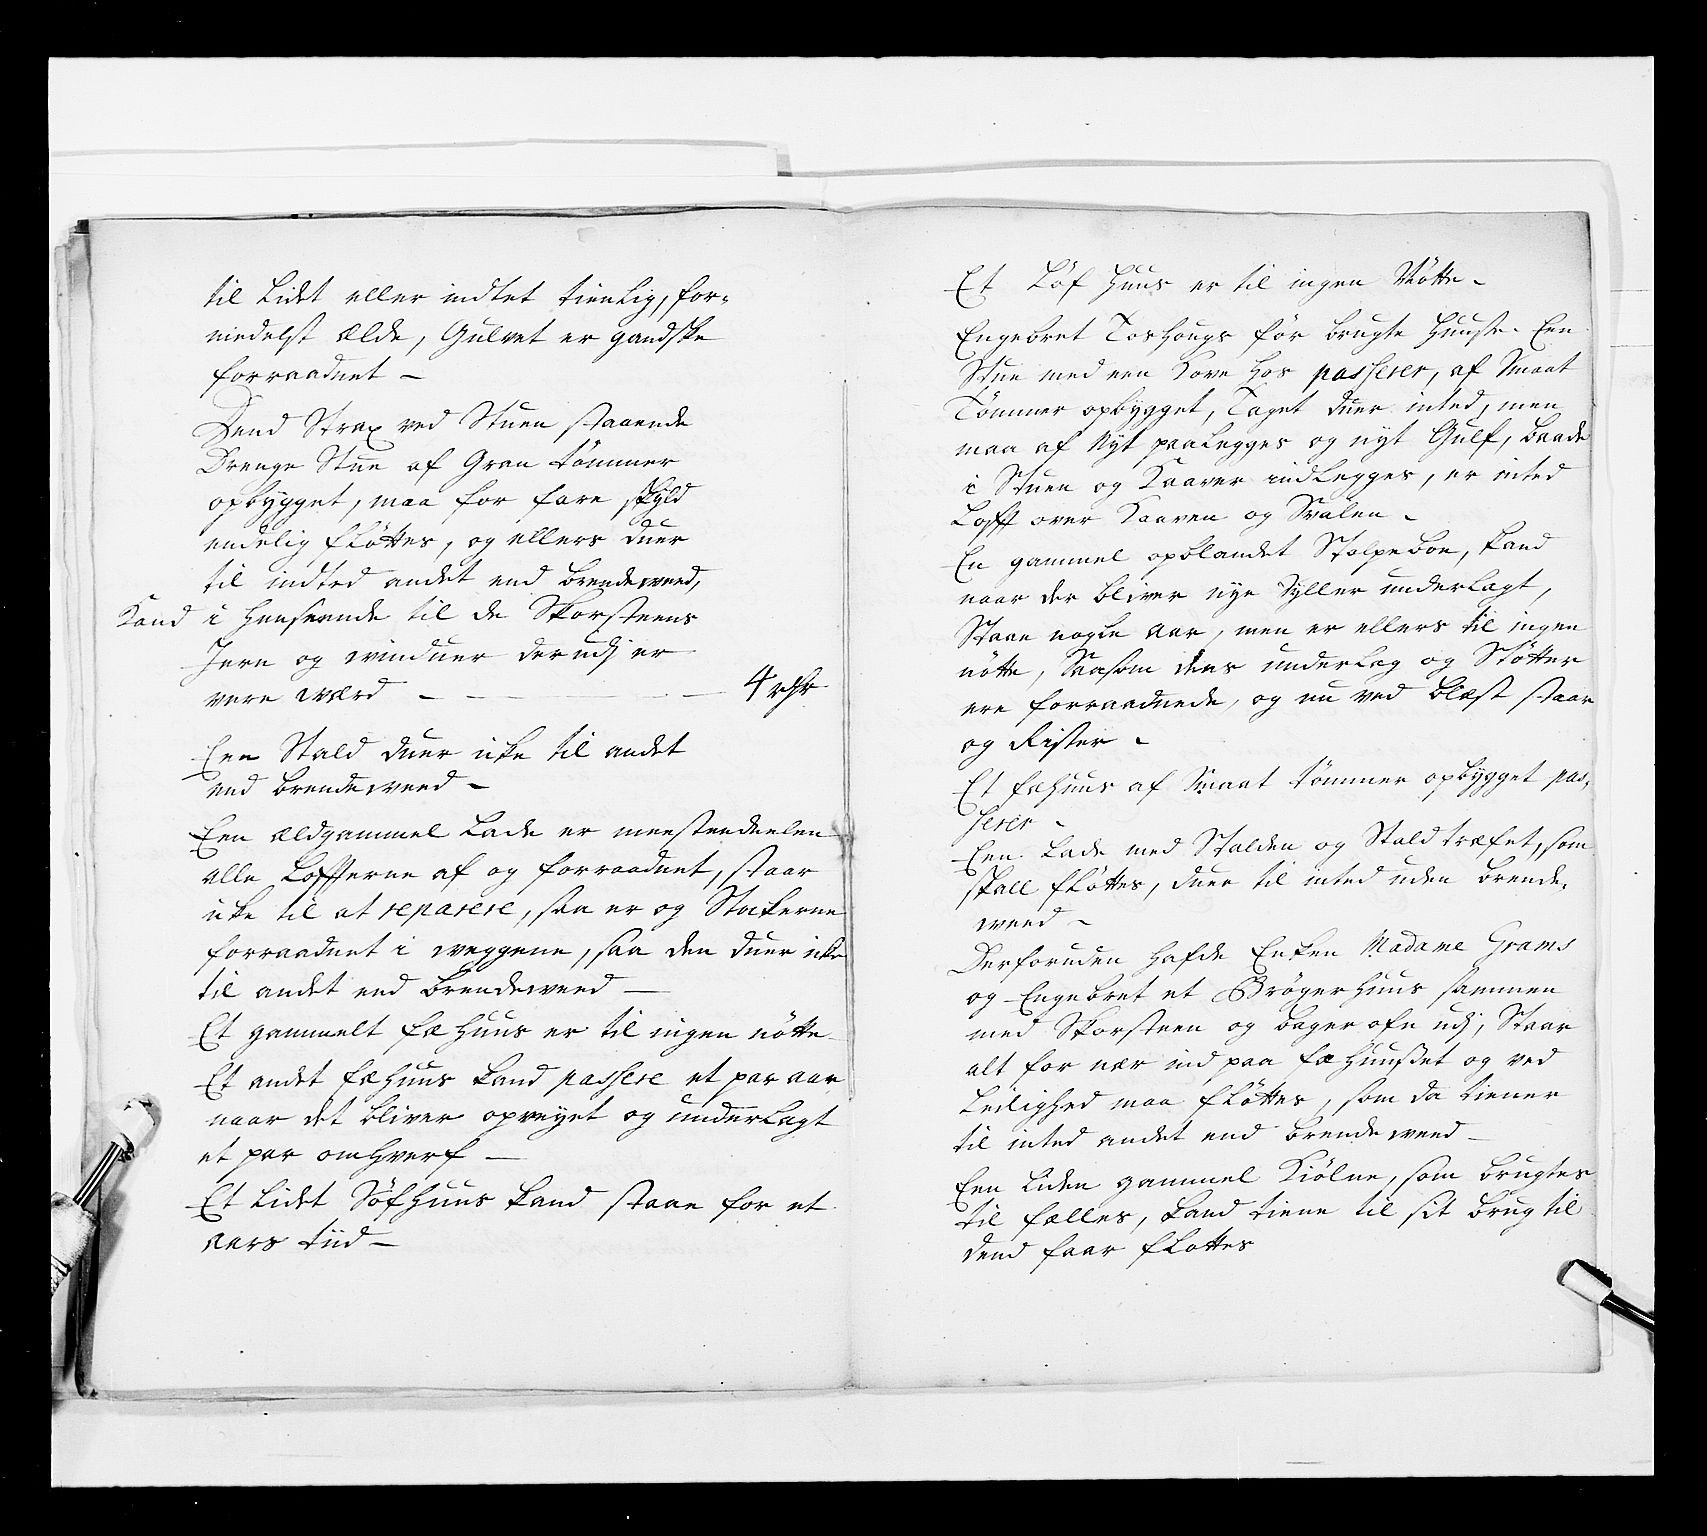 til Lidet eller indtet tienlig, for-
medelst Ælde, Gulvet er gandske
forraadnet –
Dend Strax ved Stuen staaende
Drenge Stue af Gran tømmer
opbygget, maa for fare skyld
endelig fløttes, og ellers duer
til indted andet end brendeveed,
Kand i Henseende til de Skorsteens
Jern og vinduer derudj er
vere værd – – – – 4 rdr
Een Stald duer icke til andet
end brendeveed –
Een ældgammel Lade er meestendeelen
alle Loffterne af og forraadnet, staar
icke til at reparere, saa er og Stockerne
forraadnet i veggene, saa den duer icke
til andet end brendeveed –
Et gammelt fæhuus er til ingen nøtte
Et andet fæhuus kand passere et par aar
naar det bliver opveyet og underlagt
et par omhverf –
Et Lidet Søfhuus kand staae for et
aars tiid –
Et Løf Huus er til ingen Nøtte –
Engebret Toshougs før brugte Huuse. Een
Stue med een Kove hos passerer, af Smaat
Tømmer opbygget, Taget duer inted, men
maa af Nyt paalegges og nyt Gulf, baade
i Stuen og Kaaven indlegges, er inted
Lofft over Kaaven og Svalen –
En gammel opblandet Stolpeboe, kand
naar der bliver nye Syller underlagt,
Staae nogle Aar, men er ellers til ingen
nøtte, Saasom dens underlag og Støtter
ere forraadnede, og nu ved blæst staar
og Rister –
Et fæhuus af Smaat tømmer opbygget pas-
serer –
Een Lade med Stalden og Stald træfet, som
skall fløttes, duer til inted uden brende-
veed –
Derforuden hafde Enken Madame Grams
og Engebret et Brøgerhuus sammen
med Skorsteen og bager ofn udj, Staar
alt for nær ind paa fæhuuset og ved
Leilighed maa fløttes, som da tiener
til inted andet end brendeveed –
Een Liden gammel Kiølne, som brugtes
til fælles, kand tiene til sit brug til
dend faar fløttes